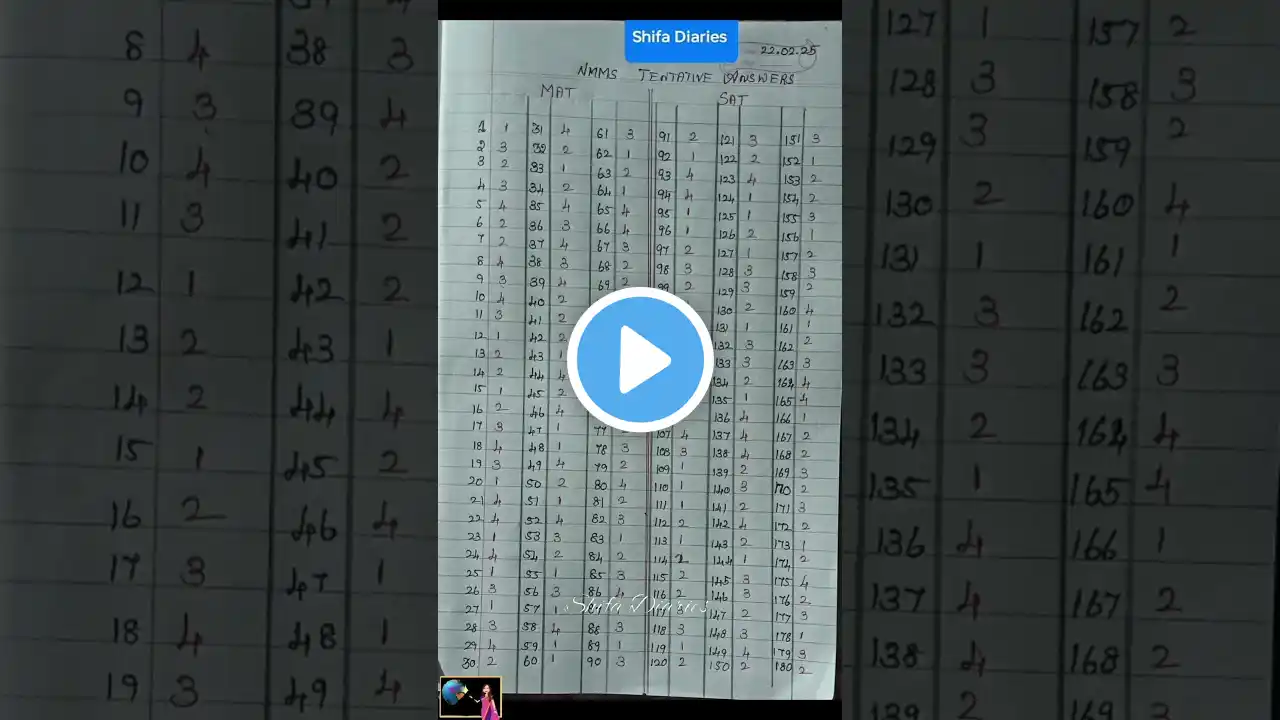 Shifa Diaries
22.02.25
NMMS TENTATIVE ANSWERS
MAT SAT
1 1 31 4 61 3 91 2 121 3 151 3
2 3 32 2 62 1 92 1 122 2 152 1
3 2 33 1 63 2 93 4 123 4 153 2
4 3 34 2 64 1 94 4 124 1 154 2
5 4 35 4 65 4 95 1 125 1 155 3
6 2 36 3 66 4 96 1 126 2 156 1
7 2 37 4 67 3 97 2 127 1 157 2
8 4 38 3 68 2 98 3 128 3 158 3
9 3 39 4 69 2 99 2 129 3 159 2
10 4 40 2 130 2 160 4
11 3 41 2 131 1 161 1
12 1 42 2 132 3 162 2
13 2 43 1 133 3 163 3
14 2 44 4 134 2 164 4
15 1 45 2 135 1 165 4
16 2 46 4 136 4 166 1
17 3 47 1 77 107 4 137 4 167 2
18 4 48 1 78 3 108 3 138 4 168 2
19 3 49 4 79 2 109 1 139 2 169 3
20 1 50 2 80 4 110 1 140 3 170 2
21 4 51 1 81 2 111 1 141 2 171 3
22 4 52 4 82 3 112 2 142 4 172 2
23 1 53 3 83 1 113 1 143 2 173 1
24 4 54 2 84 2 114 2 144 1 174 2
25 1 55 1 85 3 115 2 145 3 175 4
26 3 56 3 86 4 116 2 146 3 176 2
Shifa Diaries
27 1 57 1 147 2 177 3
28 3 58 4 88 3 118 3 148 3 178 1
29 4 59 1 89 1 119 1 149 4 179 3
30 2 60 1 90 3 120 2 150 2 180 2